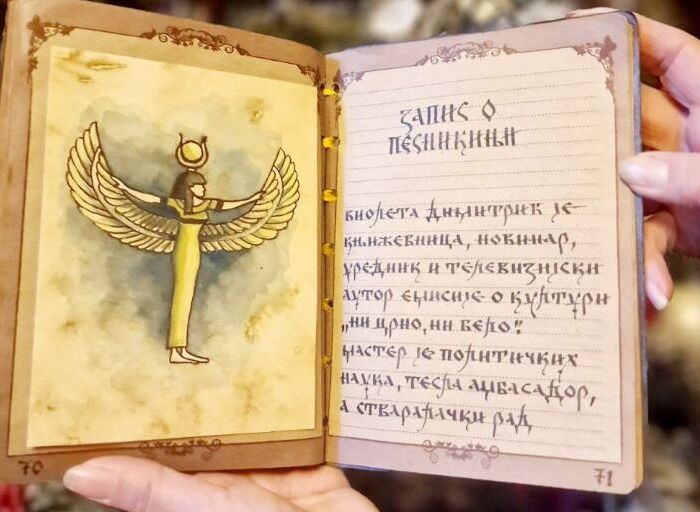 70
71
ЗАПИС О
ПЕСНИКИЊИ
ВИОЛЕТА ДИМИТРИК ЈЕ
КЊИЖЕВНИЦА, НОВИНАР,
УРЕДНИК И ТЕЛЕВИЗИЈСКИ
АУТОР ЕМИСИЈЕ О КУЛТУРИ
„НИ ЦРНО, НИ БЕЛО“.
МАСТЕР ЈЕ ПОЛИТИЧКИХ
НАУКА, ТЕСЛА АМБАСАДОР,
А СТВАРАЛАЧКИ РАД